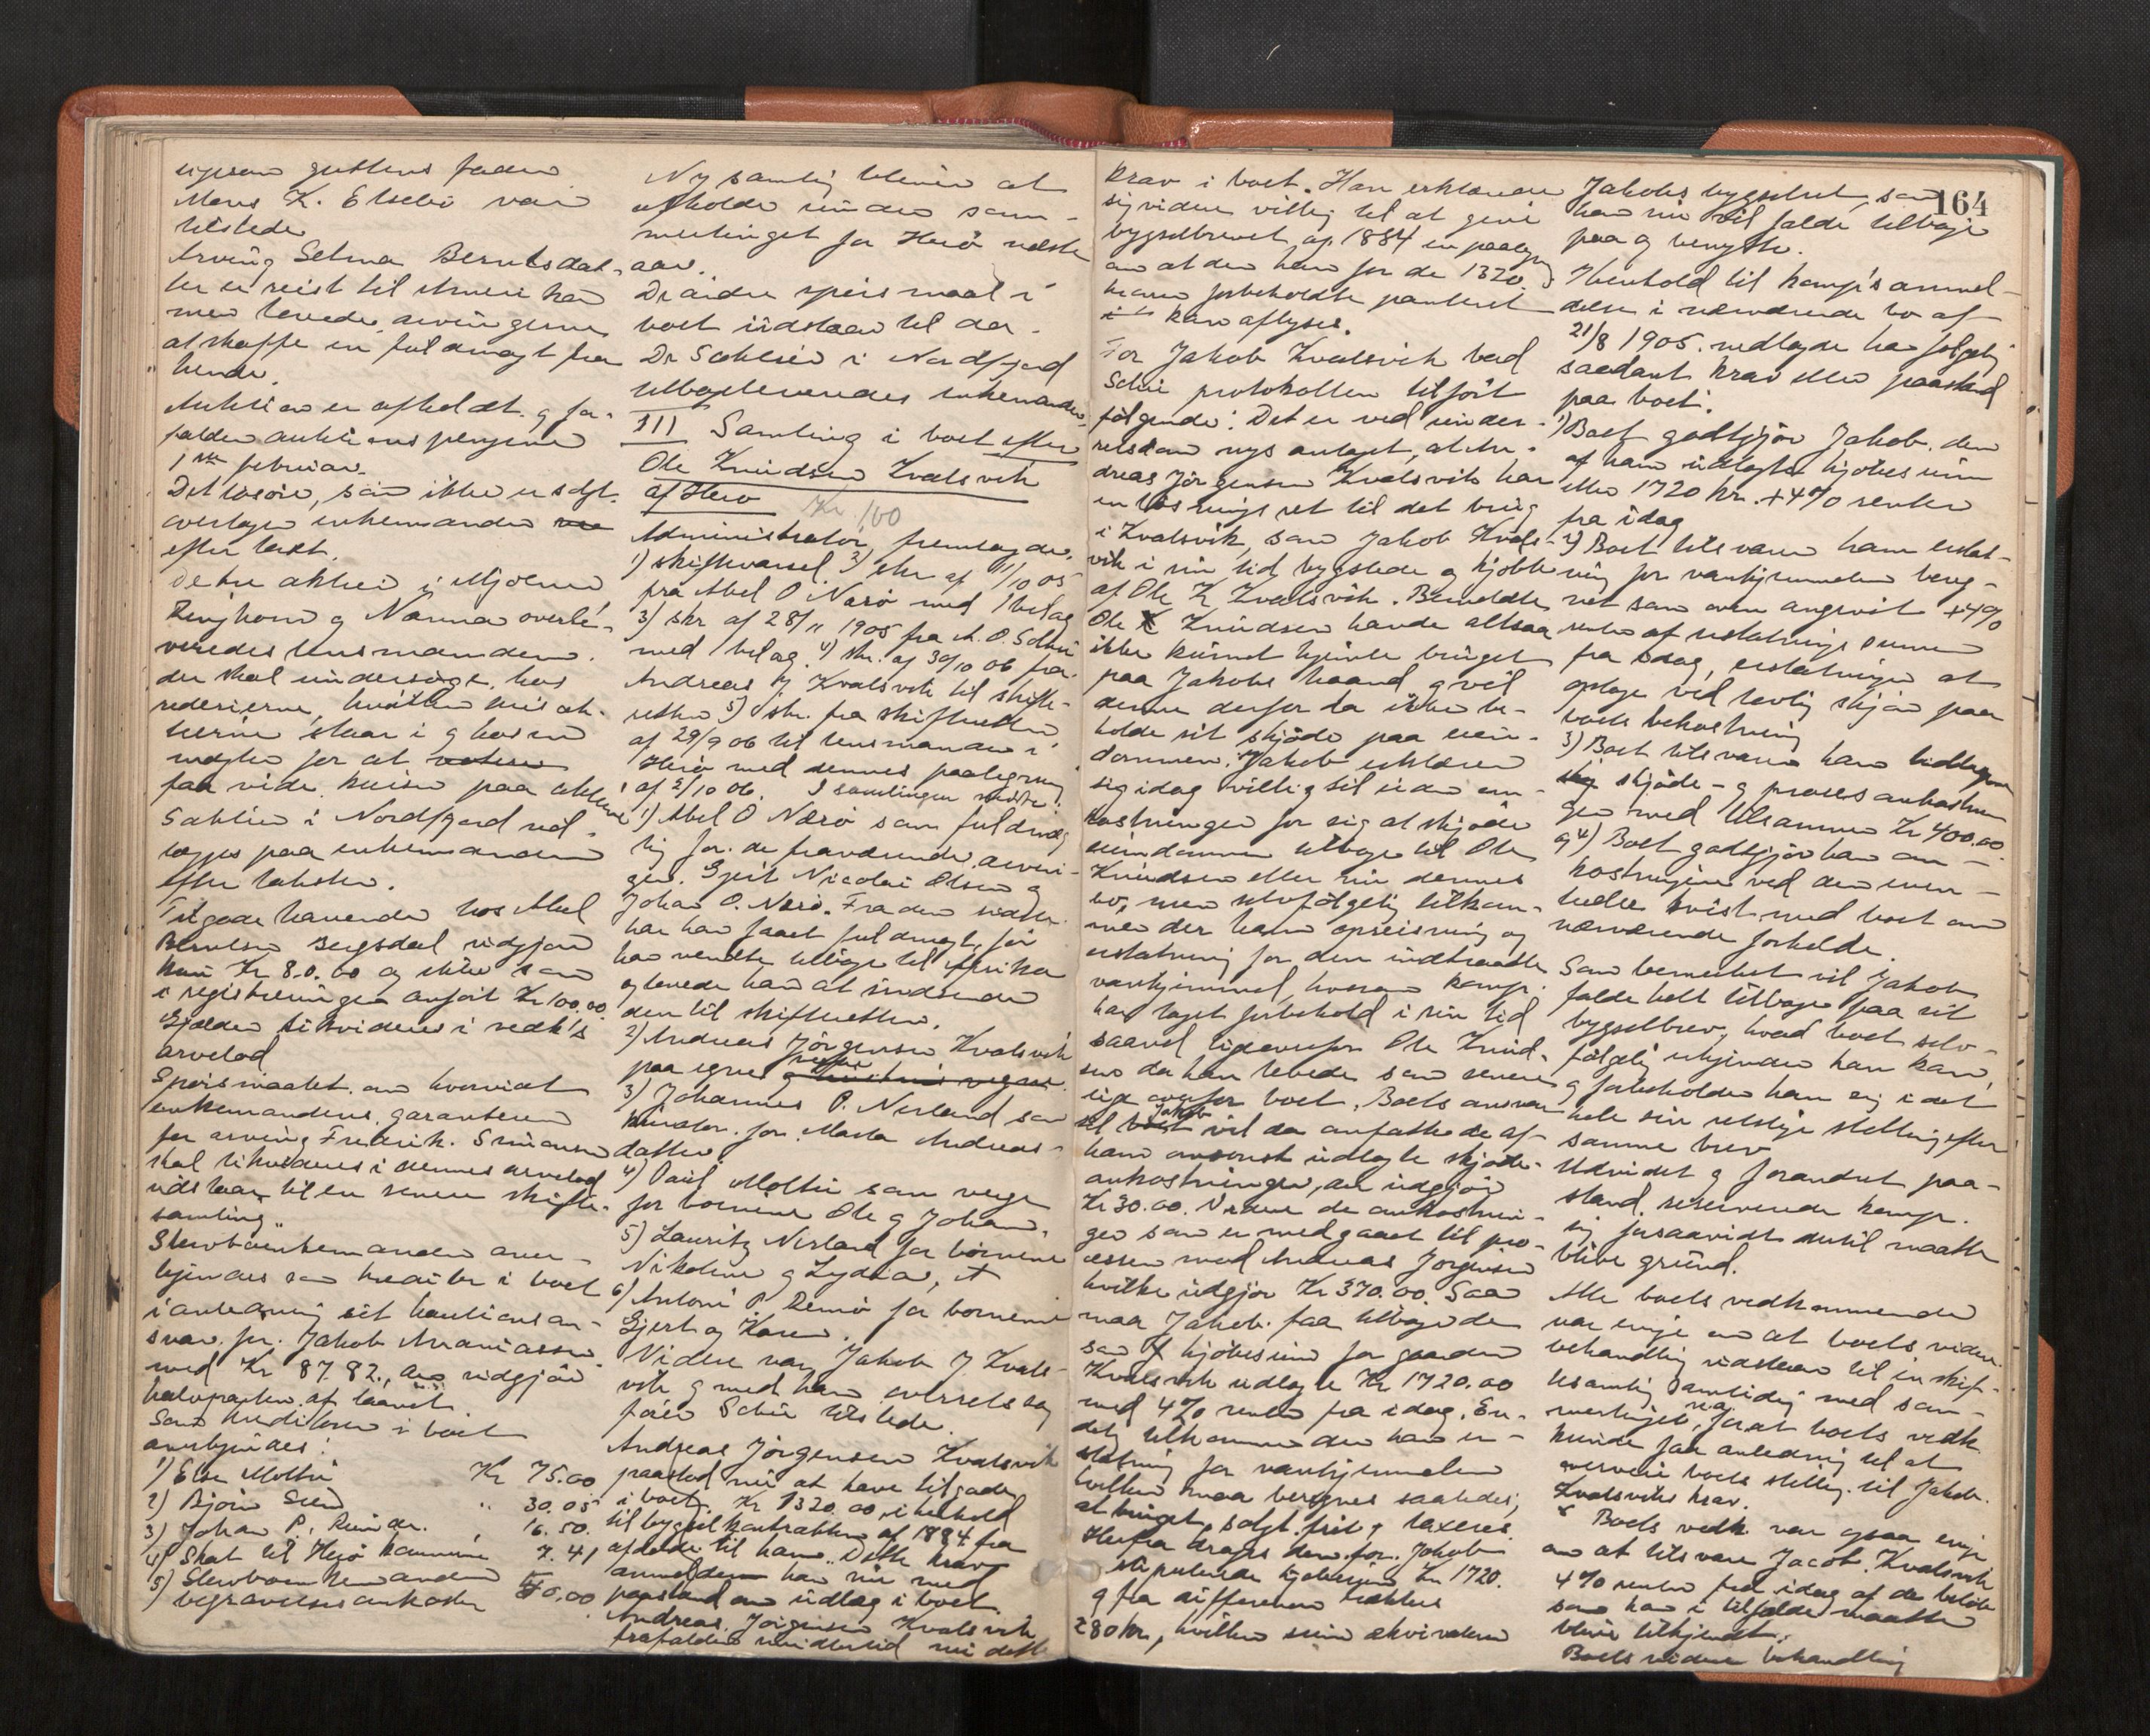 ligesom guttens fader
Mons K. Elsebø var
tilstede
Arving Selma Berntsdat-
ter er reist til Amerika
men lovede arvingerne
at skaffe en fuldmagt fra
hende.
Auktion er afholdt og for-
falder auktionspengene
1ste februar.
Det løsøre, som ikke er solgt
overtager enkemanden
efter takst.
De tre aktier i Mjølner
Ringhorn og Nanna overle-
veredes lensmanden.
der skal undersøge hos
rederierne, hvilken pris ak-
tierne staar i og hos en
megler for at
faa vide kursen paa aktierne
Søklien i Nordfjord ud-
lægges paa enkemanden
efter taksten.
Tilgodehavende hos Abel
Berntsen Bergsdal udgjør
kun Kr 80.00 og ikke som
i registreringen anført Kr 100.00.
Gjælden likvideres i vedk's
arvelod
Spørsmaalet om hvorvidt
enkemandens garantier
for arving Fredrik Simonsen
skal likvideres i dennes arvelod
udstaar til en senere skifte-
samling.
Stervboenkemanden aner-
kjendes som kreditor i boet
i anledning sit kautionsan-
svar for Jakob Ananiassen
med Kr 87.82, der udgjør
halvparten af laanet
Som kreditorer i boet
anerkjendes:
1) Else Moltu Kr 75.00
2) Bjørn " 30.05
3) Johan P. 16.50.
4) Skat til Herø kommune 7.41
5) Stervboenkemanden
begravelsesomkoster 50.00
Ny samling bliver at
afholde under som-
mertinget for Herø næste
aar.
De andre spørsmaal i
boet udstaar til da.
De Søklien i Nordfjord
tilbageleveredes enkemanden
III Samling i boet efter
Ole Knudsen Kvalsvik
af Herø
Kr. 100
Administrator fremlagde.
1) skiftevarsel 2) skr af 11/10 05
fra Abel O Nærø med 1 belag
3) skr af 28/11 1905 fra A. O. Schei
med belag. 4) skr. af 30/10 06 fra
Andreas J Kvalsvik til skifte-
retten 5) skr. fra skifteretten
af 29/9 06 til lensmanden i
Herø med dennes paategning
af 2/10 06. I samlingen mødte:
1) Abel O Nærø som fuldmæg-
tig for de fraværende arvin-
ger. Gjert Nicolai Olsen og
Johan O. Nærø. Fra den sidste
har han faaet fuldmagt, før
han vendte tilbage til Afrika
og lovede han at indsende
den til skifteretten.
2) Andreas Jørgensen Kvalsvik
paa egne vegne
3) Johannes P. Nerland som
kurator for Marta Andreas-
datter
4) Paul Moltu som verge
for børnene Ole og Johan,
5) Lauritz Nerland for børnene
Nikoline og Lydia,
6) Antoni P. Remø for børnene
Gjert og Karen.
Videre var Jakob J. Kvals-
vik og med ham overretssag
fører Schei tilstede.
Andreas Jørgensen Kvalsvik
paastod nu at have tilgode
i boet Kr 1320.00, i henhold
til bygselkontrakten af 1884 fra
afdøde til ham. Dette krav
anmelder han nu med
paastand om udlæg i boet.
Andreas Jørgensen Kvalsvik
frafalder imidlertid nu dette
164
krav i boet. Han erklærede
sig videre villig til at give
bygselbrevet af 1884 en paategning
om at den ham for de 1320
kroner forbeholdte panteret
i kan aflyses.
For Jakob Kvalsvik bad
Schei protokollen tilført
følgende: Det er ved under-
retsdom nys antaget, at An-
dreas Jørgensen Kvalsvik har
en løsningsret til det brug
i Kvalsvik, som Jakob Kvals-
vik i sin tid bygslede og kjøbte
af Ole K Kvalsvik. Bemeldte
Ole Knudsen havde altsaa
ikke kunnet hjemle bruget
paa Jakobs haand og vil
denne derfor da ikke be-
holde sit skjøde paa eien-
dommen. Jakob erklærer
sig idag villig til uden om-
kostninger for sig at skjøde
eiendommen tilbage til Ole
Knudsen eller nu dennes
bo, men selvfølgelig tilkom-
mer der ham opreisning og
erstatning for den indtraadte
vanhjemmel, hvorom komp.
har taget forbehold i sin tid
saavel ligeoverfor Ole Knud-
sen da han levede som senere
lige overfor boet. Boets ansvar
til Jakob vil da omfatte de af
ham omsonst udlagte skjøde-
omkostninger, der udgjør
Kr 30.00. Videre de omkostnin-
ger som er medgaaet til pro-
cessen mod Andreas Jørgensen
hvilke udgjør Kr 370.00. Saa
maa Jakob faa tilbage den
som kjøbesum for gaarden
Kvalsvik udlagte Kr 1720.00
med 4% renter fra idag. En-
delig tilkommer der ham er-
statning for vanhjemmelen
hvilken maa beregnes saaledes,
at bruget, solgt frit og taxeres.
Herfra drages den for Jakob
stipulerede kjøbesum Kr 1720.
og fra differensen trækkes
280 kr, hvilken sum ekvivalerer
Jakobs bygselret, som
han nu vil falde tilbage
paa og benytte.
I henhold til komp's anmel-
delse i nærværende bo af
21/8 1905. nedlagde han følgelig
saadant krav eller paastand
paa boet.
1) Boet godtgjør Jakob den
af ham udlagte kjøbesum
eller 1720 kr. + 4% renter
fra idag
2) Boet tilsvarer ham erstat-
ning for vanhjemmelen bereg-
net som oven angivet + 4%
renter af erstatnings summen
fra idag, erstatningen at
optage ved lovlig skjøn paa
boets bekostning
3) Boet tilsvarer ham
skjøde- og procesomkostnin-
ger med tilsammen Kr 400.00.
og 4) Boet godtgjør ham om-
kostningerne ved den even-
tuelle tvist med boet om
nærværende forholde.
Som bemerket vil Jakob
falde helt tilbage paa sit
bygselbrev, hvad boet selv-
følgelig erkjender han kan,
og forbeholder han sig i det
hele sin retslige stilling efter
samme brev
Udvidet og forandret paa-
stand reserverede komp.
sig forsaavidt dertil maatte
blive grund.
Alle boets vedkommende
var enige om at boets videre
behandling udstaar til en skif-
tesamling samtidig med som-
mertinget, for at boets vedk
kunde faa anledning til at
overveie boets stilling til Jakob
Kvalsviks krav.
Boets vedk. var ogsaa enige
om at tilsvare Jacob Kvalsvik
4% renter fra idag af de beløb
som han i tilfælde maatte
blive tilkjendt.
Boets videre behandling